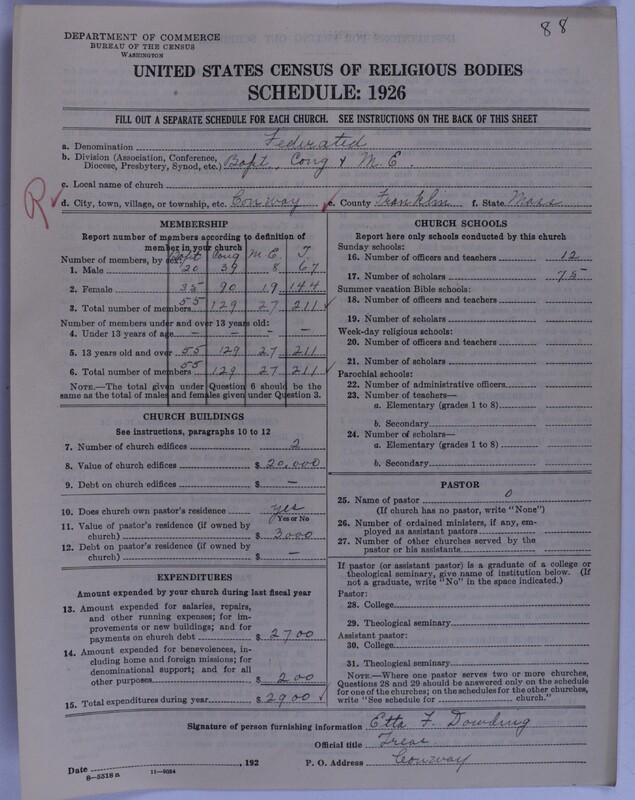 88
DEPARTMENT OF COMMERCE
BUREAU OF THE CENSUS
WASHINGTON
UNITED STATES CENSUS OF RELIGIOUS BODIES
SCHEDULE: 1926
FILL OUT A SEPARATE SCHEDULE FOR EACH CHURCH. SEE INSTRUCTIONS ON THE BACK OF THIS SHEET
a. Denomination Federated
b. Division (Association, Conference, Diocese, Presbytery, Synod, etc.) Bapt, Cong & M.E.
c. Local name of church
R d. City, town, village, or township, etc. Conway e. County Franklin f. State Mass
MEMBERSHIP
Report number of members according to definition of
member in your church
Number of members, by sex: Bapt Cong M.E. T.
1. Male 20 39 8 67
2. Female 35 90 19 144
3. Total number of members 55 129 27 211
Number of members under and over 13 years old:
4. Under 13 years of age – – – –
5. 13 years old and over 55 129 27 211
6. Total number of members 55 129 27 211
NOTE.—The total given under Question 6 should be the
same as the total of males and females given under Question 3.
CHURCH BUILDINGS
See instructions, paragraphs 10 to 12
7. Number of church edifices 2
8. Value of church edifices $ 20,000
9. Debt on church edifices $ –
10. Does church own pastor's residence yes
Yes or No
11. Value of pastor's residence (if owned by
church) $ 3000
12. Debt on pastor's residence (if owned by
church) $ –
EXPENDITURES
Amount expended by your church during last fiscal year
13. Amount expended for salaries, repairs,
and other running expenses; for im-
provements or new buildings; and for
payments on church debt $ 2700
14. Amount expended for benevolences, in-
cluding home and foreign missions; for
denominational support; and for all
other purposes $ 200
15. Total expenditures during year $ 2900
CHURCH SCHOOLS
Report here only schools conducted by this church
Sunday schools:
16. Number of officers and teachers 12
17. Number of scholars 75
Summer vacation Bible schools:
18. Number of officers and teachers
19. Number of scholars
Week-day religious schools:
20. Number of officers and teachers
21. Number of scholars
Parochial schools:
22. Number of administrative officers
23. Number of teachers—
a. Elementary (grades 1 to 8)
b. Secondary
24. Number of scholars—
a. Elementary (grades 1 to 8)
b. Secondary
PASTOR
25. Name of pastor 0
(If church has no pastor, write "None")
26. Number of ordained ministers, if any, em-
ployed as assistant pastors
27. Number of other churches served by the
pastor or his assistants
If pastor (or assistant pastor) is a graduate of a college or
theological seminary, give name of institution below. (If
not a graduate, write "No" in the space indicated.)
Pastor:
28. College
29. Theological seminary
Assistant pastor:
30. College
31. Theological seminary
NOTE.—Where one pastor serves two or more churches,
Questions 28 and 29 should be answered only on the schedule
for one of the churches; on the schedules for the other churches,
write "See schedule for church."
Signature of person furnishing information Etta F. Dowding
Official title Treas
Date , 192 P. O. Address Conway
8—5518 a 11—9034